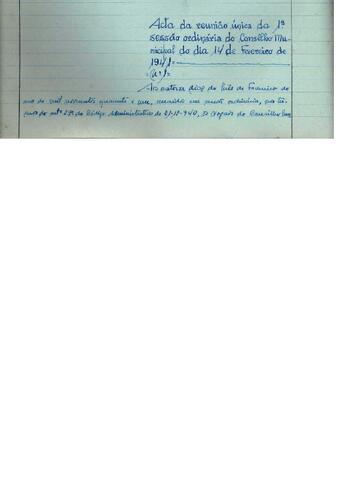 Acta da reunião única da 1ª
sessão ordinária do Conselho Mu-
nicipal do dia 14 de Fevereiro de
1941=
Aos catorze dias do mês de Fevereiro do
ano de mil novecentos quarenta e um, reunido em sessão ordinária, nos ter-
mos do artº 29º do Código Administrativo de 31-12-940, o